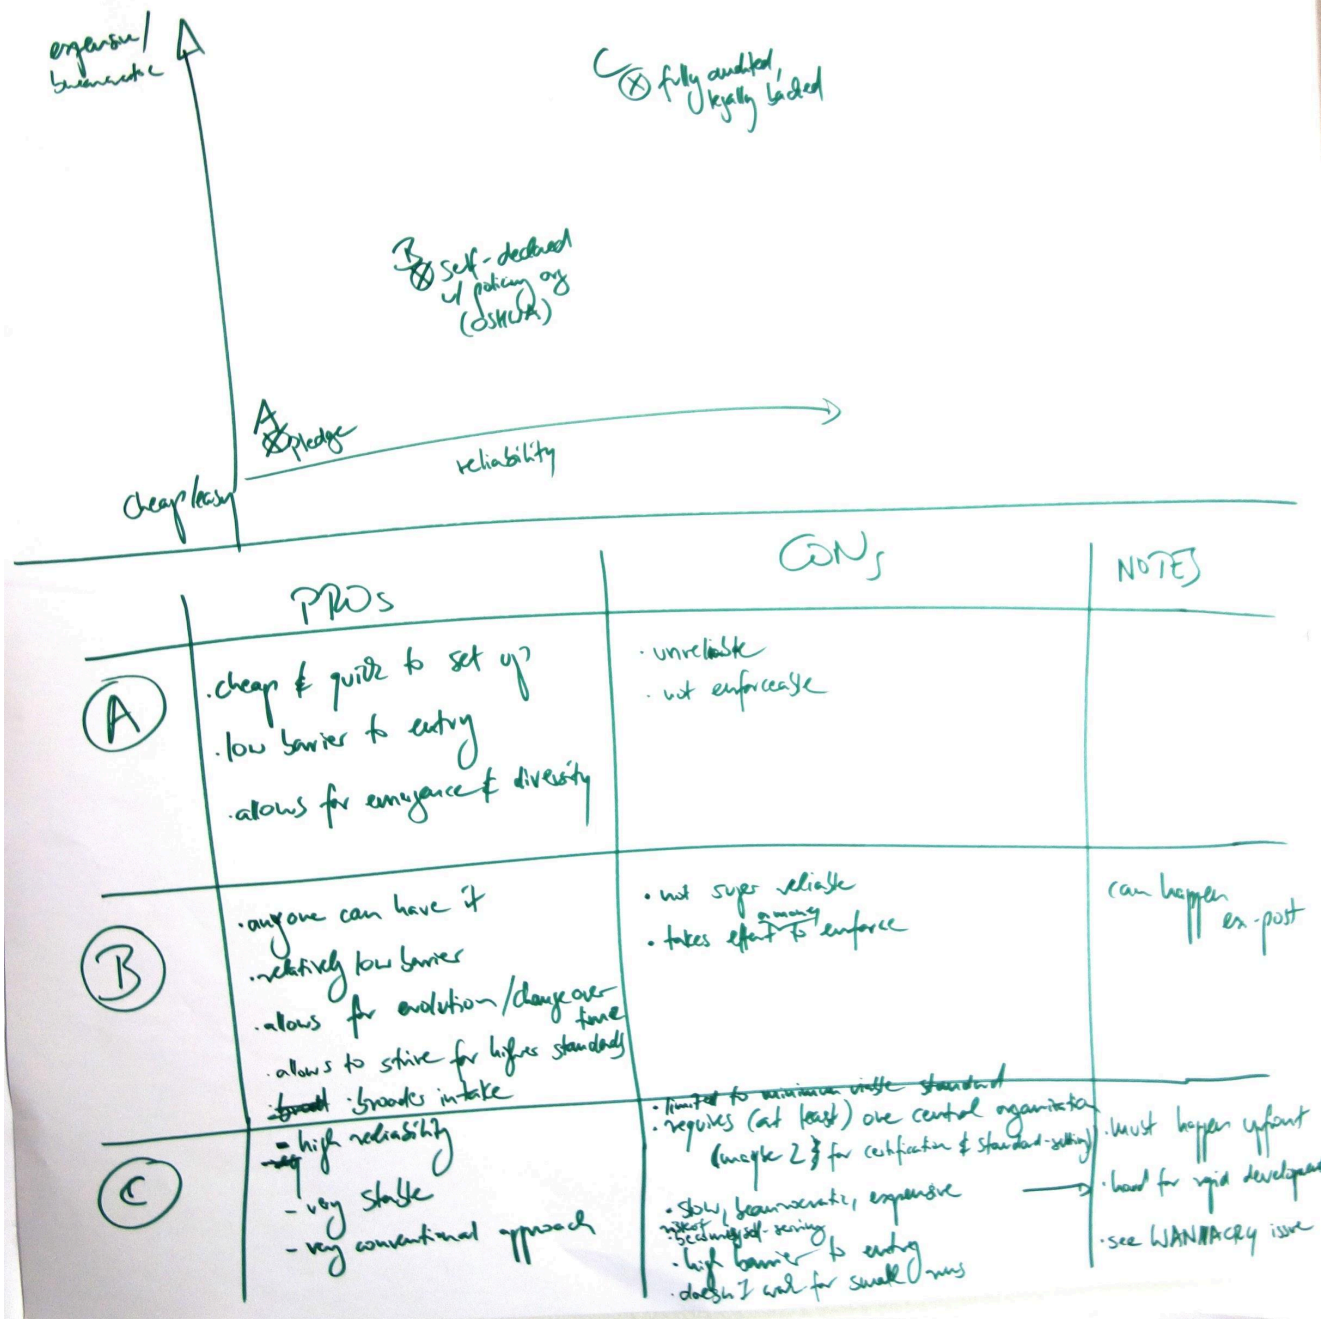 expensive/
bureaucratic
C
fully audited,
legally backed
B
self-declared
w/ policing org
(OSHWA)
A
pledge
reliability
cheap/easy
PROs
CONs
NOTES
A
·cheap & quick to set up
·low barrier to entry
·allows for emergence & diversity
· unreliable
· not enforceable
B
·anyone can have it
·relatively low barrier
·allows for evolution/change over
time
·allows to strive for higher standards
·broader intake
· not super reliable
· takes effort to enforce
can happen
ex-post
C
- high reliability
- very stable
- very conventional approach
· limited to minimum viable standard
· requires (at least) one central organisation
(maybe 2) for certification & standard-setting
· slow, beaurocratic, expensive
risk of
becoming self-serving
· high barrier to entry
· doesn't work for small runs
· must happen upfront
· hard for rapid development
· see WANNACRY issue